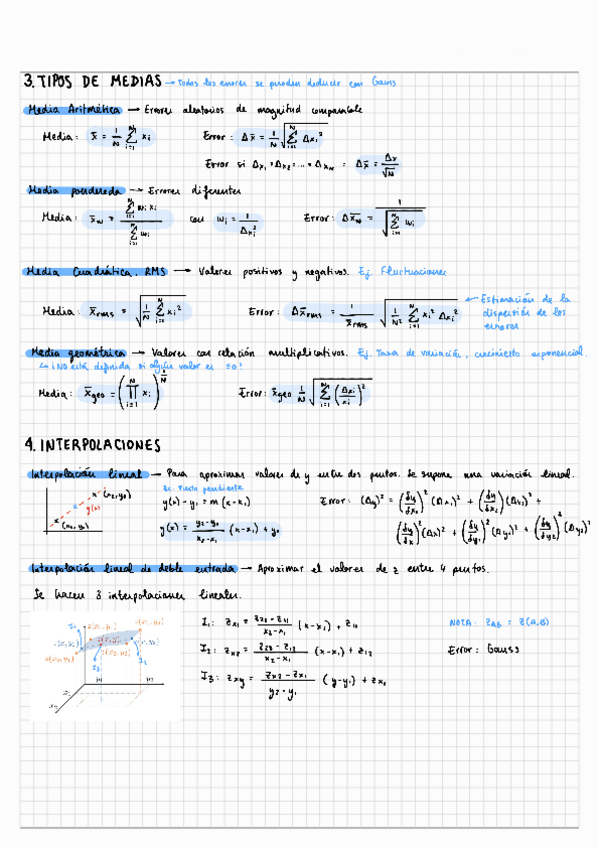 3. TIPOS DE MEDIAS → Todos los errores se pueden deducir con Gauss
Media Aritmética → Errores aleatorios de magnitud comparable
Media: x̄ = 1/N ∑_{i=1}^{N} x_i   Error: Δx̄ = 1/N √(∑_{i=1}^{N} Δx_i²)
Error si Δx_1 = Δx_2 = ... = Δx_N : Δx̄ = Δx/√N
Media ponderada → Errores diferentes
Media: x̄_w = ∑_{i=1}^{N} w_i x_i / ∑_{i=1}^{N} w_i   con w_i = 1/Δx_i²   Error: Δx̄_w = 1/√(∑_{i=1}^{N} w_i)
Media Cuadrática, RMS → Valores positivos y negativos. Ej. Fluctuaciones
Media: x̄_rms = √(1/N ∑_{i=1}^{N} x_i²)   Error: Δx̄_rms = 1/x̄_rms √(1/N² ∑_{i=1}^{N} x_i² Δx_i²) ← Estimación de la
dispersión de los
errores
Media geométrica → Valores con relación multiplicativos. Ej. Tasa de variación, crecimiento exponencial.
↳ ¡No está definida si algún valor es ≤0!
Media: x̄_geo = (∏_{i=1}^{N} x_i)^{1/N}   Error: x̄_geo 1/N √(∑_{i=1}^{N} (Δx_i/x_i)²)
4. INTERPOLACIONES
Interpolación lineal → Para aproximar valores de y entre dos puntos. Se supone una variación lineal.
Ec. Punto pendiente
(x_2, y_2)
y(x)
(x_1, y_1)
y(x) - y_1 = m (x - x_1)
y(x) = (y_2 - y_1)/(x_2 - x_1) (x - x_1) + y_1
Error: (Δy)² = (δy/δx_1)² (Δx_1)² + (δy/δx_2)² (Δx_2)² +
(δy/δx)² (Δx)² + (δy/δy_1)² (Δy_1)² + (δy/δy_2)² (Δy_2)²
Interpolación lineal de doble entrada → Aproximar el valores de z entre 4 puntos.
Se hacen 3 interpolaciones lineales.
I_1: z_x1 = (z_21 - z_11)/(x_2 - x_1) (x - x_1) + z_11   NOTA: z_AB = z(A,B)
I_2: z_x2 = (z_22 - z_12)/(x_2 - x_1) (x - x_1) + z_12   Error: Gauss
I_3: z_xy = (z_x2 - z_x1)/(y_2 - y_1) (y - y_1) + z_x1